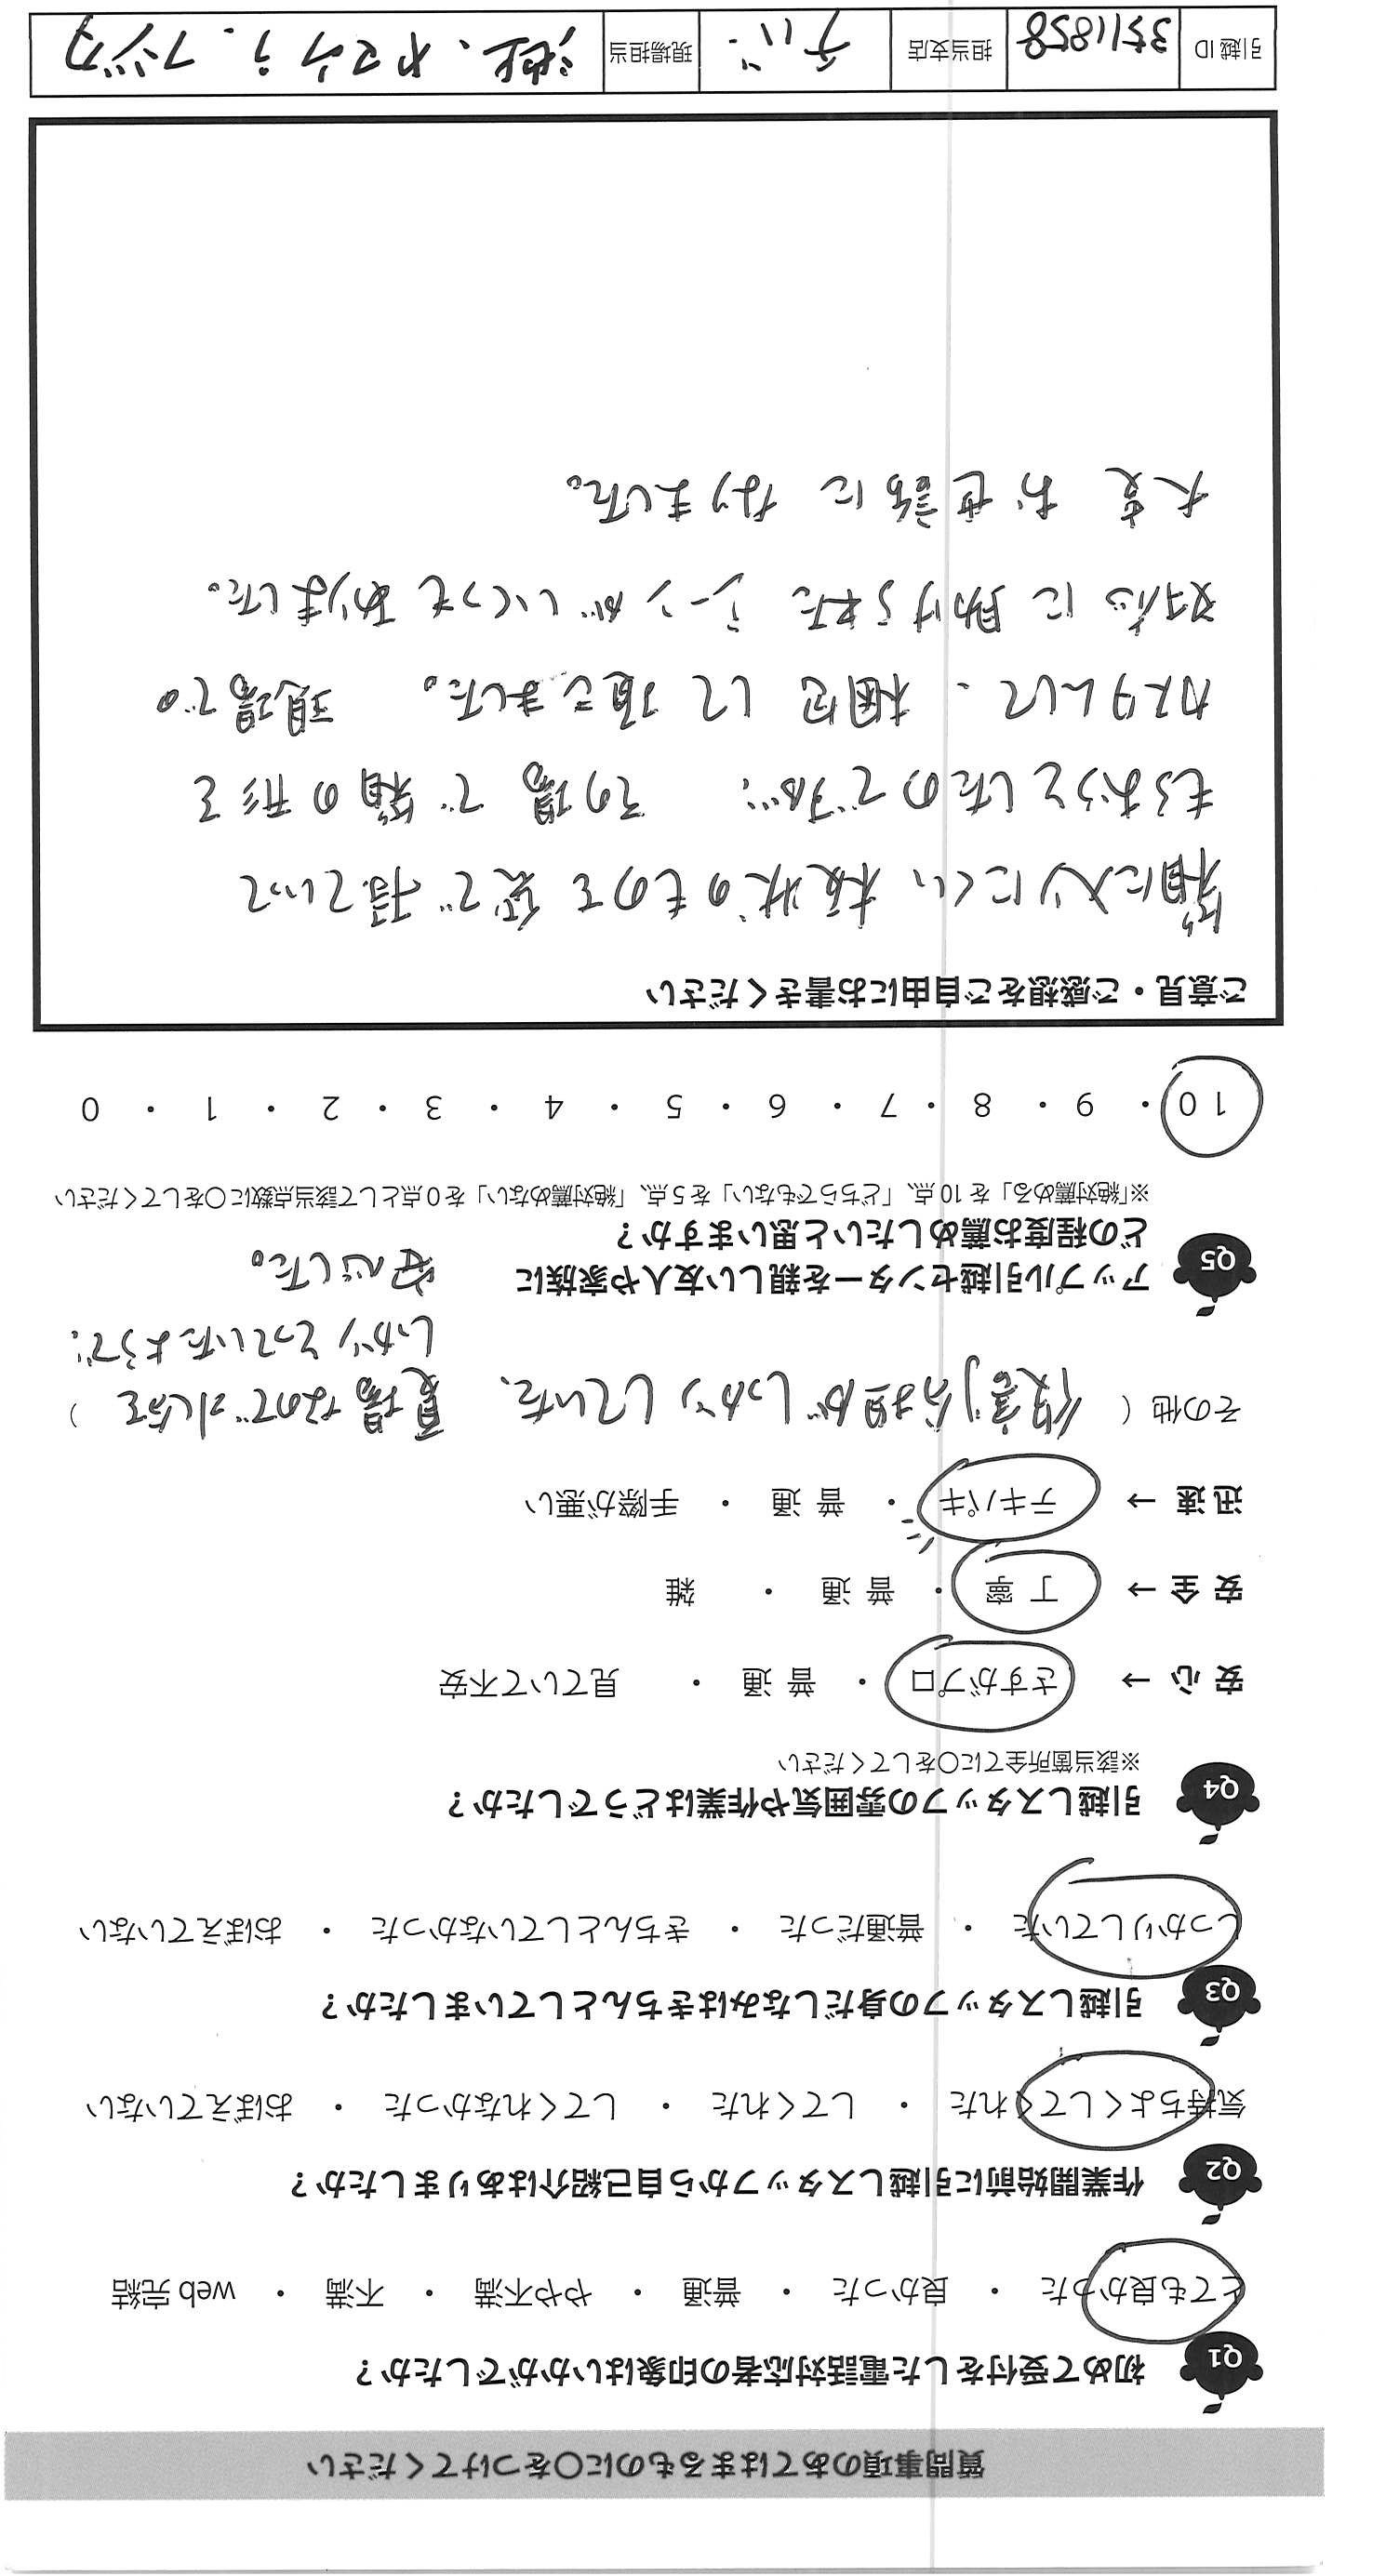 質問事項のあてはまるものに〇をつけてください
Q1 初めて受付をした電話対応者の印象はいかがでしたか？
とても良かった ・ 良かった ・ 普通 ・ やや不満 ・ 不満 ・ web 完結
Q2 作業開始前に引越しスタッフから自己紹介はありましたか？
気持ちよくしてくれた ・ してくれた ・ してくれなかった ・ おぼえていない
Q3 引越しスタッフの身だしなみはきちんとしていましたか？
しっかりしていた ・ 普通だった ・ きちんとしていなかった ・ おぼえていない
Q4 引越しスタッフの雰囲気や作業はどうでしたか？
※該当箇所全てに〇をしてください
安 心 → さすがプロ ・ 普 通 ・ 見ていて不安
安 全 → 丁 寧 ・ 普 通 ・ 雑
迅 速 → テキパキ ・ 普 通 ・ 手際が悪い
その他（ 役割分担がしっかりしていた、 夏場なので水分を ）
しっかりとっていたようで
安心した。
Q5 アップル引越センターを親しい友人や家族に
どの程度お薦めしたいと思いますか？
※「絶対薦める」を 10 点、「どちらでもない」を 5 点、「絶対薦めない」を 0 点として該当点数に〇をしてください
10 ・ 9 ・ 8 ・ 7 ・ 6 ・ 5 ・ 4 ・ 3 ・ 2 ・ 1 ・ 0
ご意見・ご感想をご自由にお書きください
箱に入りにくい 板状のものを 袋で 持っていって
もらおうとしたのですが、 その場で 箱の形を
カスタムして、 梱包して頂きました。 現場での
対応に 助けられた シーンが いくつも ありました。
大変 お世話に なりました。
引越 ID 3511858 担当支店 チバ 現場担当 池上、ヤマウラ、フジタ